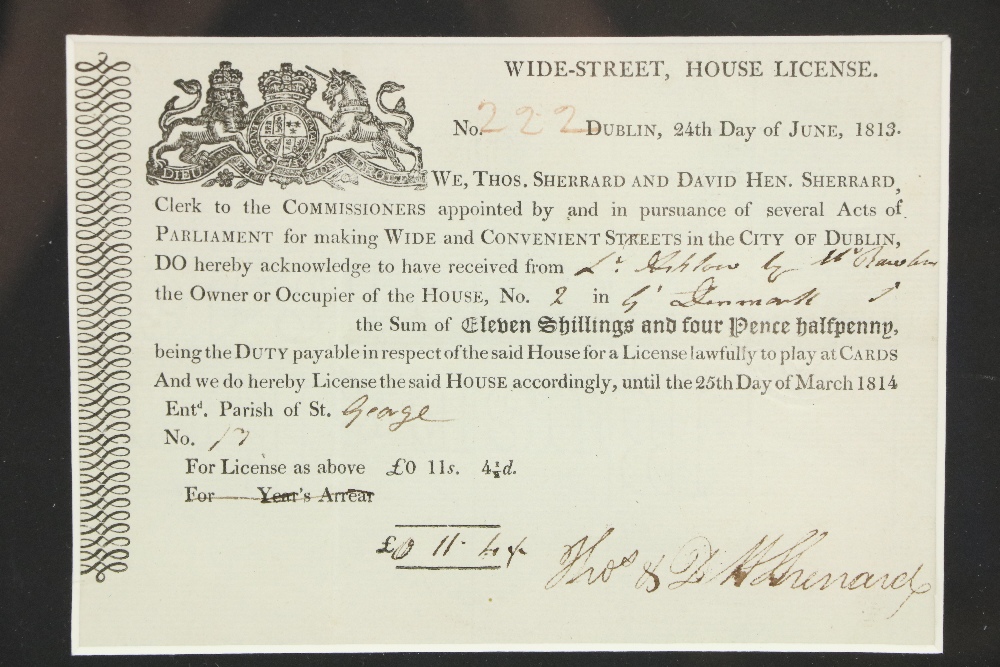 WIDE-STREET, HOUSE LICENSE.
No. 222 DUBLIN, 24th Day of JUNE, 1813.
DIEU ET MON DROIT
WE, THOS. SHERRARD AND DAVID HEN. SHERRARD,
Clerk to the COMMISSIONERS appointed by and in pursuance of several Acts of
PARLIAMENT for making WIDE and CONVENIENT STREETS in the CITY OF DUBLIN,
DO hereby acknowledge to have received from by
the Owner or Occupier of the HOUSE, No. 2 in Gt Denmark
the Sum of Eleven Shillings and four Pence halfpenny,
being the DUTY payable in respect of the said House for a License lawfully to play at CARDS
And we do hereby License the said HOUSE accordingly, until the 25th Day of March 1814
Entd. Parish of St. George
No.
For License as above £0 11s. 4½d.
For Year's Arrear
£0 11 4½
Thos & D H Sherrard